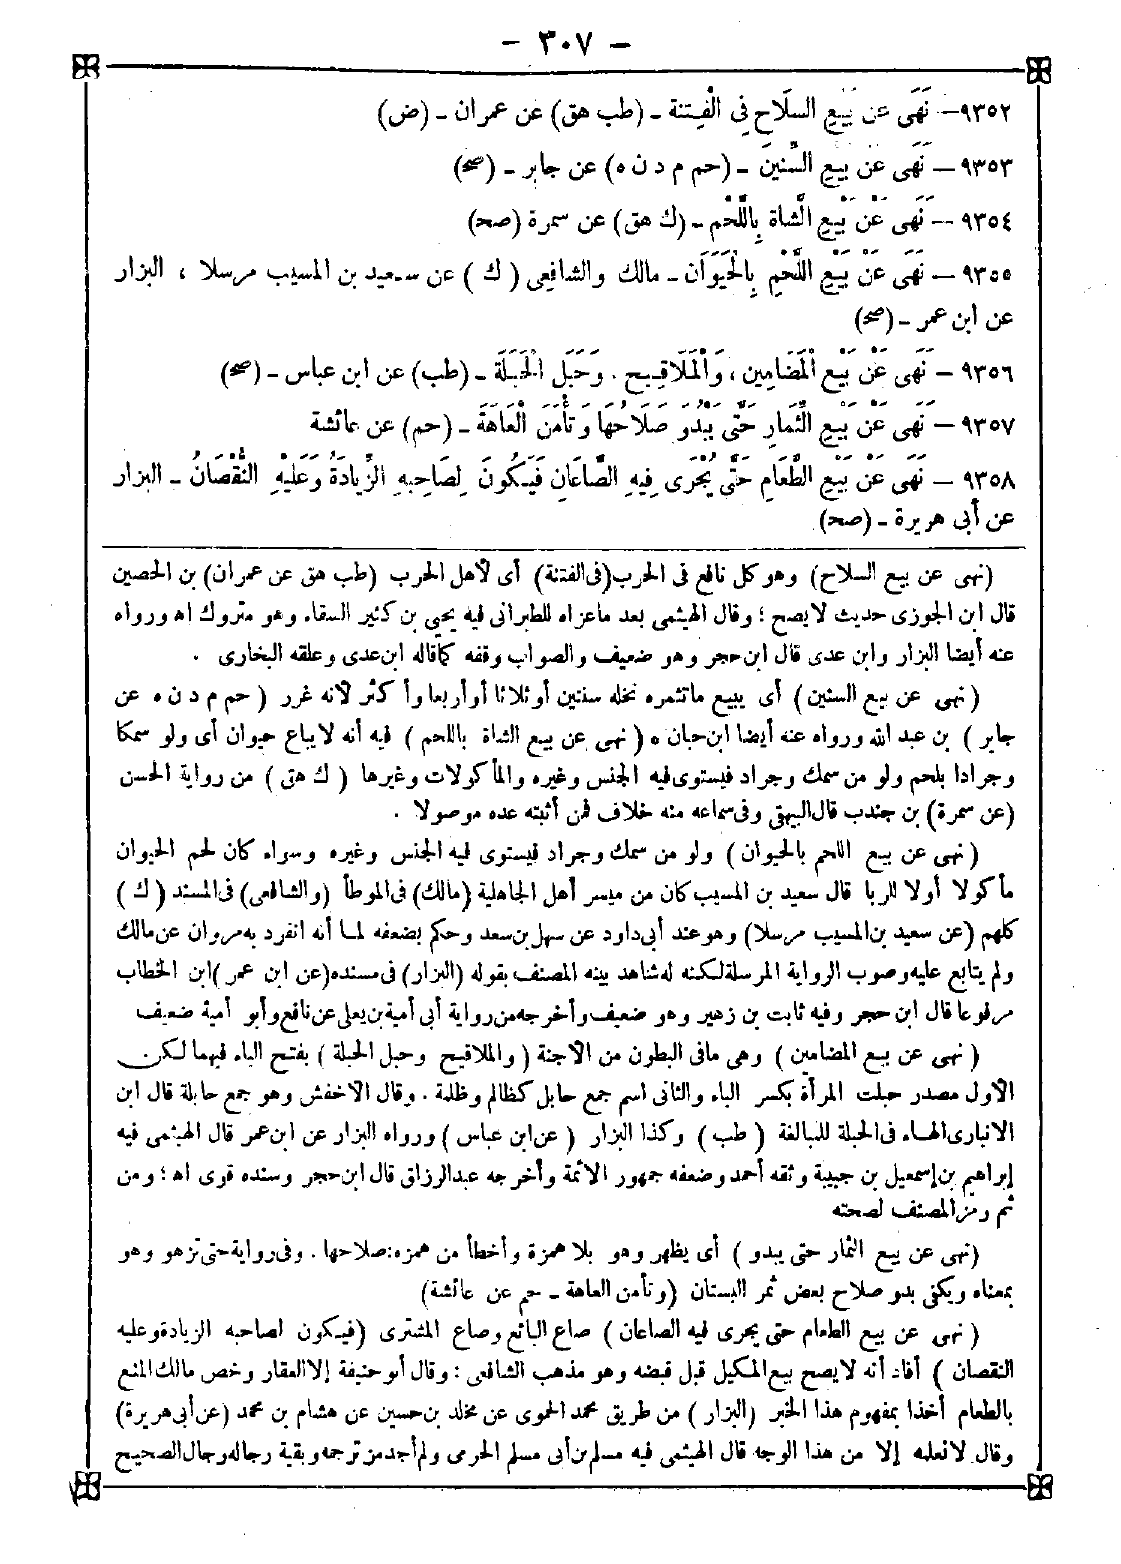 – ٣٠٧ –
٩٣٥٢– نَهَى عَنْ بَيْعِ السِّلَاحِ فِى الْفِتْنَةِ – (طب هق) عن عمران – (ض)
٩٣٥٣ – نَهَى عَنْ بَيْعِ السِّنِينَ – (حم م د ن ه) عن جابر – (صح)
٩٣٥٤ – نَهَى عَنْ بَيْعِ الشَّاةِ بِاللَّحْمِ – (ك هق) عن سمرة (صح)
٩٣٥٥ – نَهَى عَنْ بَيْعِ اللَّحْمِ بِالْحَيَوَانِ – مالك والشافعى (ك) عن سعيد بن المسيب مرسلا ، البزار
عن ابن عمر – (صح)
٩٣٥٦ – نَهَى عَنْ بَيْعِ الْمَضَامِينِ، وَالْمَلَاقِيحِ. وَحَبَلِ الْحَبَلَةِ – (طب) عن ابن عباس – (صح)
٩٣٥٧ – نَهَى عَنْ بَيْعِ الثِّمَارِ حَتَّى يَبْدُوَ صَلَاحُهَا وَتَأْمَنَ الْعَاهَةَ – (حم) عن عائشة
٩٣٥٨ – نَهَى عَنْ بَيْعِ الطَّعَامِ حَتَّى يُجْرَى فِيهِ الصَّاعَانِ فَيَكُونَ لِصَاحِبِهِ الزِّيَادَةُ وَعَلَيْهِ النُّقْصَانُ – البزار
عن أبى هريرة – (صح)
(نهى عن بيع السلاح) وهو كل نافع فى الحرب (فى الفتنة) أى لأهل الحرب (طب هق عن عمران) بن الحصين
قال ابن الجوزى حديث لا يصح ؛ وقال الهيثمى بعد ما عزاه للطبرانى فيه يحيى بن كثير السقاء وهو متروك اه ورواه
عنه أيضا البزار وابن عدى قال ابن حجر وهو ضعيف والصواب وقفه كما قاله ابن عدى وعلقه البخارى .
(نهى عن بيع السنين) أى بيع ما تثمره نخله سنتين أو ثلاثا أو أربعا وأكثر لأنه غرر (حم م د ن ه عن
جابر) بن عبد الله ورواه عنه أيضا ابن حبان ه (نهى عن بيع الشاة باللحم) فيه أنه لا يباع حيوان أى ولو سمكا
وجرادا بلحم ولو من سمك وجراد فيستوى فيه الجنس وغيره والمأكولات وغيرها (ك هق) من رواية الحسن
(عن سمرة) بن جندب قال البيهقى وفى سماعه منه خلاف فمن أثبته عده موصولا .
(نهى عن بيع اللحم بالحيوان) ولو من سمك وجراد فيستوى فيه الجنس وغيره وسواء كان لحم الحيوان
مأكولا أولا للربا قال سعيد بن المسيب كان من ميسر أهل الجاهلية (مالك) فى الموطأ (والشافعى) فى المسند (ك)
كلهم (عن سعيد بن المسيب مرسلا) وهو عند أبى داود عن سهل بن سعد وحكم بضعفه لما أنه انفرد به مروان عن مالك
ولم يتابع عليه وصوب الرواية المرسلة لكنه له شاهد بينه المصنف بقوله (البزار) فى مسنده (عن ابن عمر) ابن الخطاب
مرفوعا قال ابن حجر وفيه ثابت بن زهير وهو ضعيف وأخرجه من رواية أبى أمية بن يعلى عن نافع وأبو أمية ضعيف
(نهى عن بيع المضامين) وهى ما فى البطون من الأجنة (والملاقيح وحبل الحبلة) بفتح الباء فيهما لكن
الأول مصدر حبلت المرأة بكسر الباء والثانى اسم جمع حابل كظالم وظلمة . وقال الأخفش وهو جمع حابلة قال ابن
الانبارى الهاء فى الحبلة للمبالغة (طب) وكذا البزار (عن ابن عباس) ورواه البزار عن ابن عمر قال الهيثمى فيه
إبراهيم بن إسمعيل بن حبيبة وثقه أحمد وضعفه جمهور الأئمة وأخرجه عبد الرزاق قال ابن حجر وسنده قوى اه ؛ ومن
ثم رمز المصنف لصحته
(نهى عن بيع الثمار حتى يبدو) أى يظهر وهو بلا همزة وأخطأ من همزه: صلاحها . وفى رواية حتى تزهو وهو
بمعناه ويكفى بدو صلاح بعض ثمر البستان (وتأمن العاهة – حم عن عائشة)
(نهى عن بيع الطعام حتى يجرى فيه الصاعان) صاع البائع وصاع المشترى (فيكون لصاحبه الزيادة وعليه
النقصان) أفاد أنه لا يصح بيع المكيل قبل قبضه وهو مذهب الشافعى : وقال أبو حنيفة إلا العقار وخص مالك المنع
بالطعام أخذا بمفهوم هذا الخبر (البزار) من طريق محمد الحموى عن مخلد بن حسين عن هشام بن محمد (عن أبى هريرة)
وقال لا نعلمه إلا من هذا الوجه قال الهيثمى فيه مسلم بن أبى مسلم الحرمى ولم أجد من ترجمه وبقية رجاله رجال الصحيح